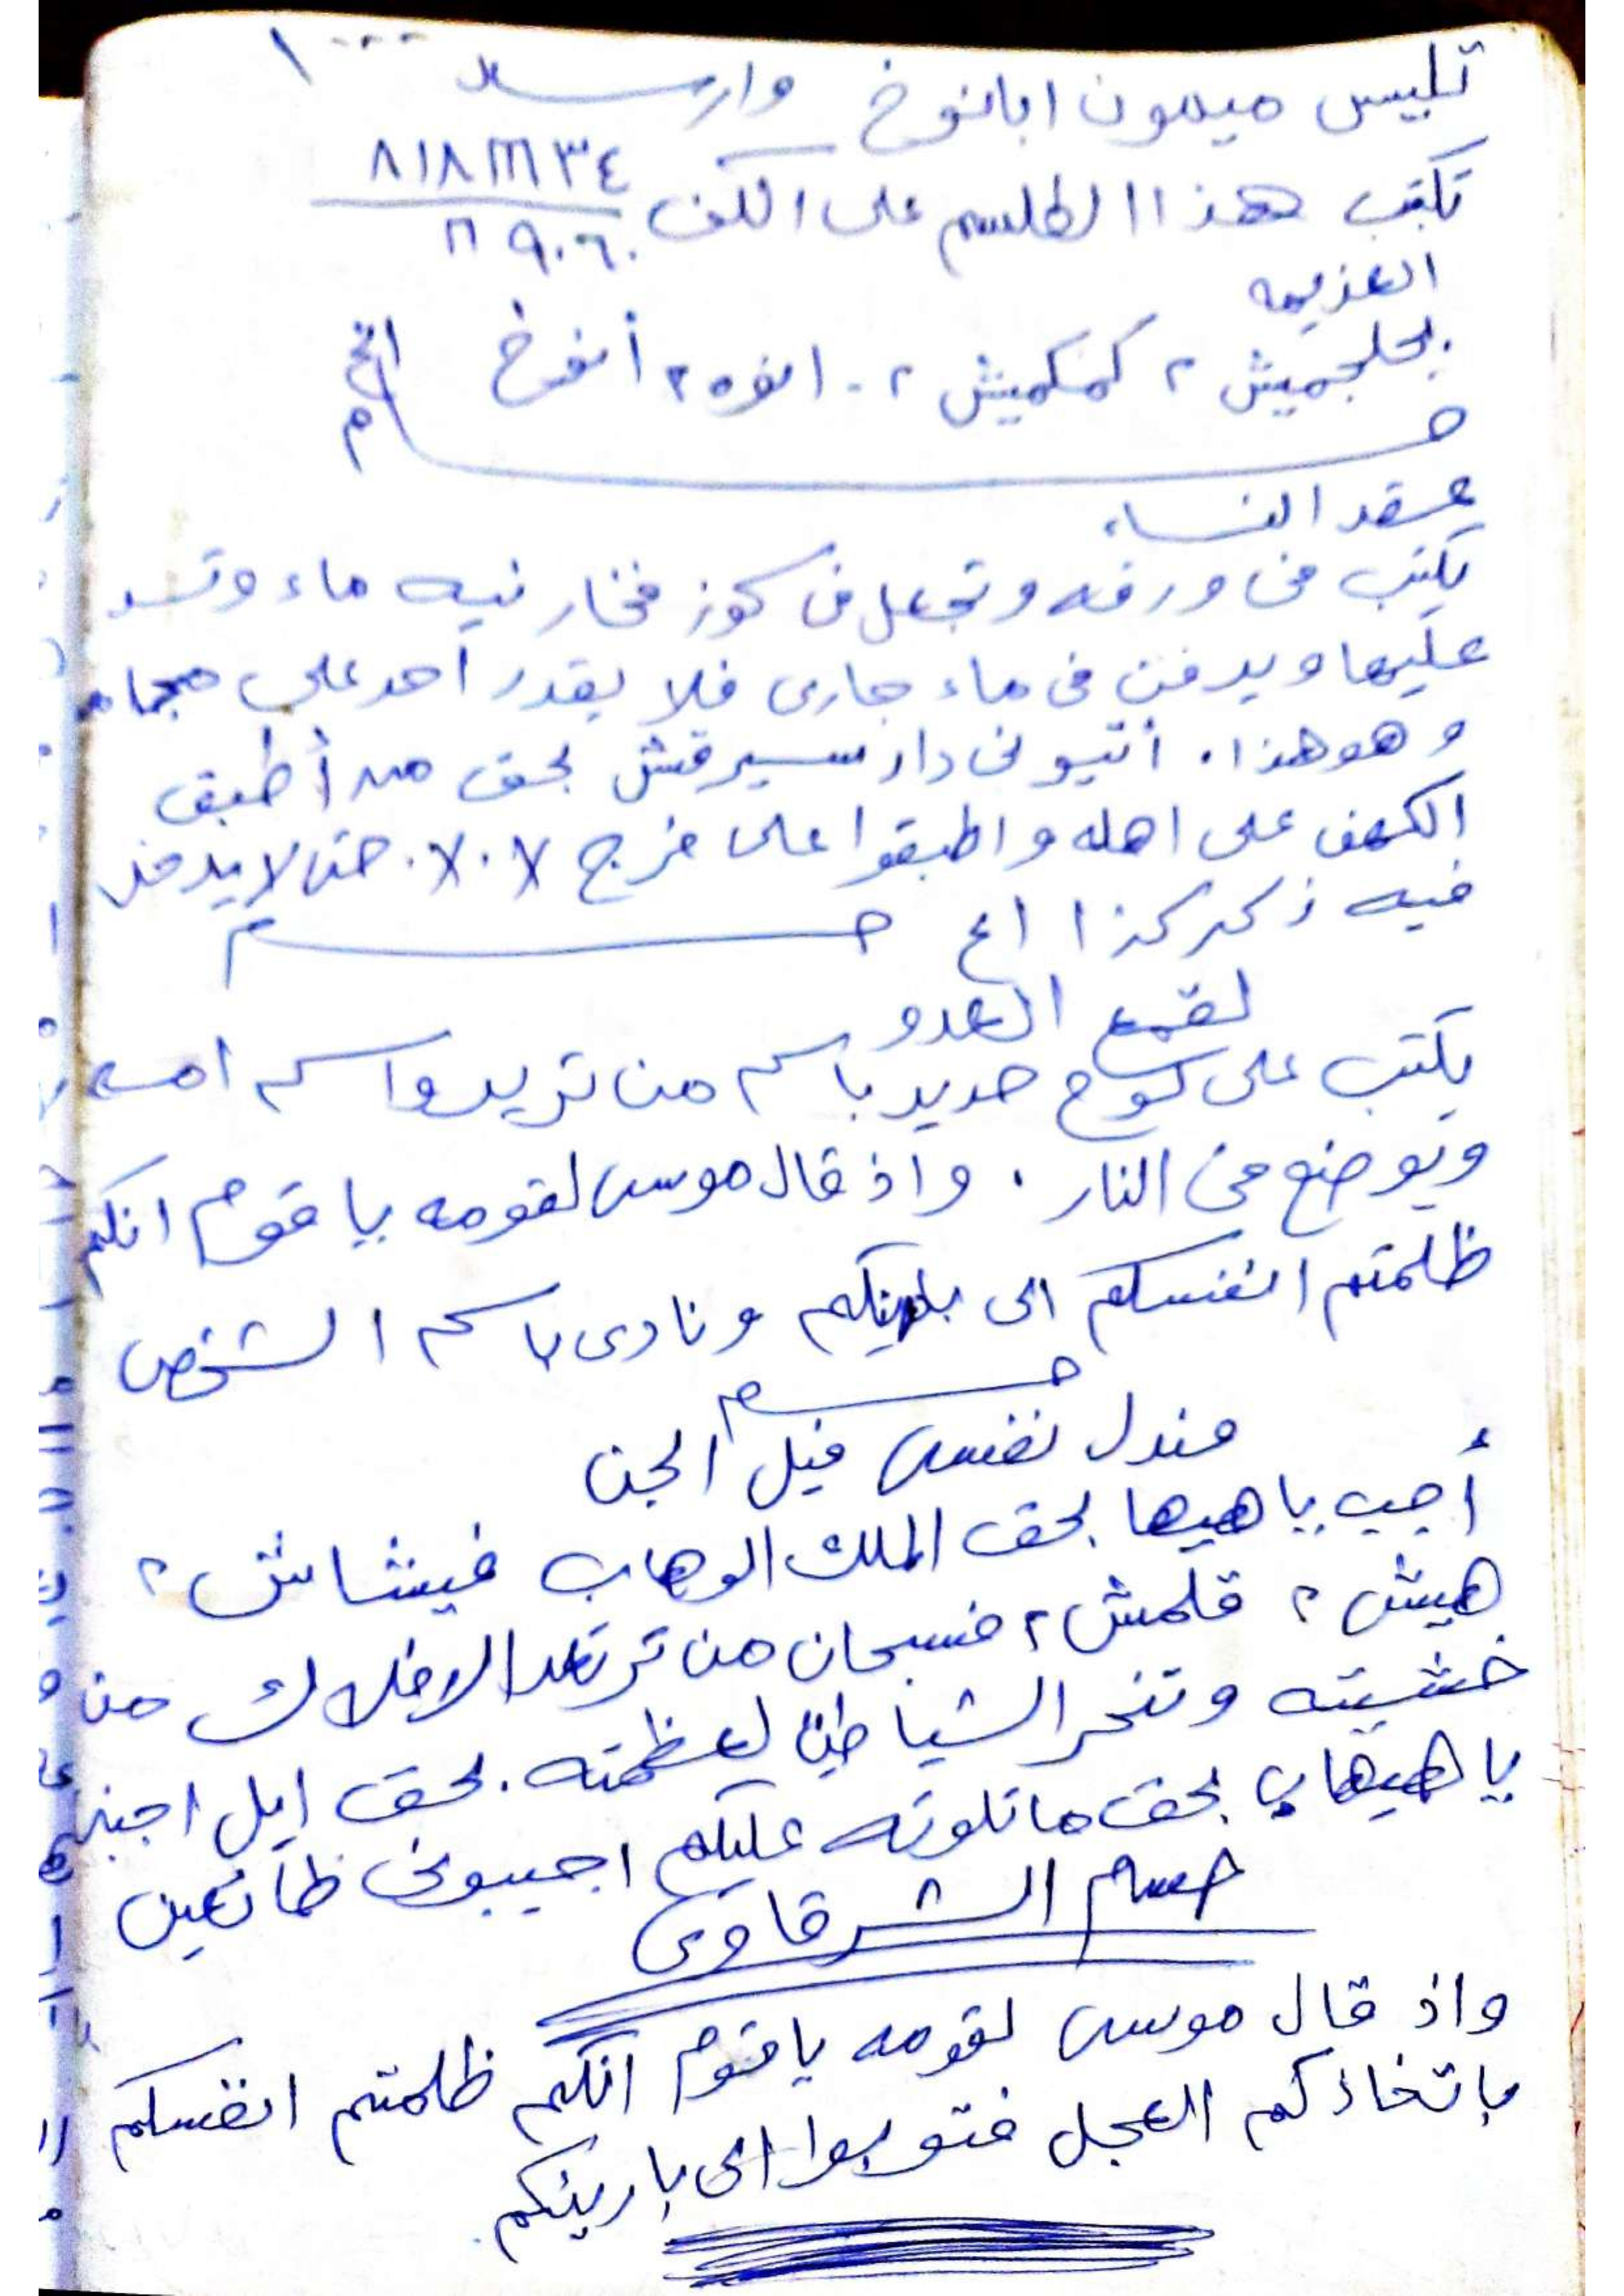 تلبيس ميمون ابانوخ
تكتب هذا الطلسم على الكف
العزيمه
بحلجميش ٢ كمكميش ٢ . انوه ٢ أنوخ الخ
عقد النساء
يكتب فى ورقه وتجعل فى كوز فخار فيه ماء وتسد
عليها ويدفن فى ماء جارى فلا يقدر أحد على
وهو هذا . أتيونى دار بحق من أطبق
الكهف على اهله واطبقوا على فرج حتى لا يدخل
فيه ذكر كذا
لقمع العدو
يكتب على لوح حديد باسم من تريد واسم امه
ويوضع فى النار . واذ قال موسى لقومه يا قوم انكم
ظلمتم انفسكم الى ونادى باسم الشخص
مندل نفسى فيل الجن
أجب يا هيها بحق الملك الوهاب فيشاش ٢
هيش ٢ قلمش ٢ فسبحان من ترتعد الافلاك من
خشيته وتخر الشياطين لعظمته . بحق ايل اجب
يا بحق ما تلوته عليكم اجيبونى طائعين
الشرقاوى
واذ قال موسى لقومه يا قوم انكم ظلمتم انفسكم
باتخاذكم العجل فتوبوا الى بارينكم